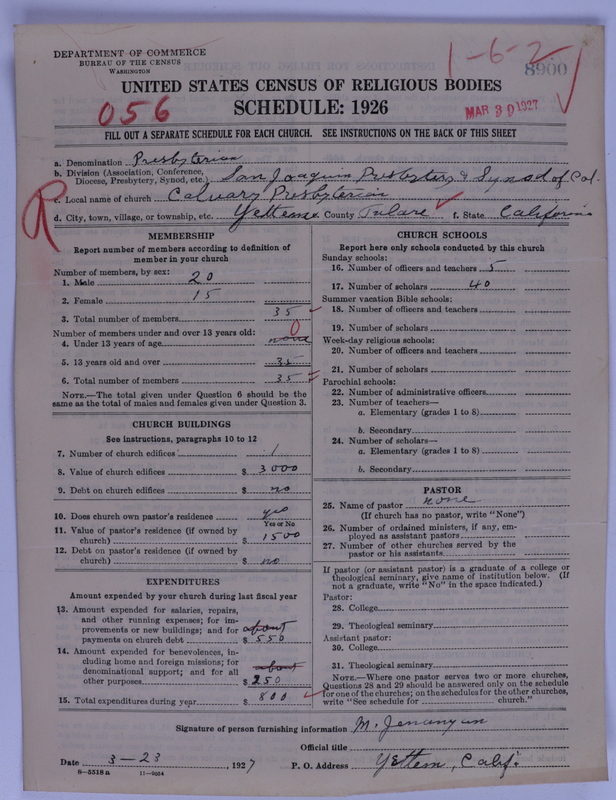 DEPARTMENT OF COMMERCE
BUREAU OF THE CENSUS
WASHINGTON
1-6-2
8900
UNITED STATES CENSUS OF RELIGIOUS BODIES
056
SCHEDULE: 1926
MAR 30 1927
FILL OUT A SEPARATE SCHEDULE FOR EACH CHURCH. SEE INSTRUCTIONS ON THE BACK OF THIS SHEET
a. Denomination Presbyterian
b. Division (Association, Conference, Diocese, Presbytery, Synod, etc.) San Joaquin Presbytery & Synod of Cal.
R
c. Local name of church Calvary Presbyterian
d. City, town, village, or township, etc. Yettem e. County Tulare f. State California
MEMBERSHIP
Report number of members according to definition of
member in your church
Number of members, by sex:
1. Male 20
2. Female 15
3. Total number of members 35
Number of members under and over 13 years old: 0
4. Under 13 years of age none
5. 13 years old and over 35
6. Total number of members 35
NOTE.—The total given under Question 6 should be
same as the total of males and females given under Question 3.
CHURCH BUILDINGS
See instructions, paragraphs 10 to 12
7. Number of church edifices 1
8. Value of church edifices $ 3000
9. Debt on church edifices $ no
10. Does church own pastor's residence yes
Yes or No
11. Value of pastor's residence (if owned by
church) $ 1500
12. Debt on pastor's residence (if owned by
church) $ no
EXPENDITURES
Amount expended by your church during last fiscal year
13. Amount expended for salaries, repairs,
and other running expenses; for im-
provements or new buildings; and for about
payments on church debt $ 550
14. Amount expended for benevolences, in-
cluding home and foreign missions; for
denominational support; and for all about
other purposes $ 250
15. Total expenditures during year $ 800
CHURCH SCHOOLS
Report here only schools conducted by this church
Sunday schools:
16. Number of officers and teachers 5
17. Number of scholars 40
Summer vacation Bible schools:
18. Number of officers and teachers
19. Number of scholars
Week-day religious schools:
20. Number of officers and teachers
21. Number of scholars
Parochial schools:
22. Number of administrative officers
23. Number of teachers—
a. Elementary (grades 1 to 8)
b. Secondary
24. Number of scholars—
a. Elementary (grades 1 to 8)
b. Secondary
PASTOR
25. Name of pastor none
(If church has no pastor, write "None")
26. Number of ordained ministers, if any, em-
ployed as assistant pastors
27. Number of other churches served by the
pastor or his assistants
If pastor (or assistant pastor) is a graduate of a college or
theological seminary, give name of institution below. (If
not a graduate, write "No" in the space indicated.)
Pastor:
28. College
29. Theological seminary
Assistant pastor:
30. College
31. Theological seminary
NOTE.—Where one pastor serves two or more churches,
Questions 28 and 29 should be answered only on the schedule
for one of the churches; on the schedules for the other churches,
write "See schedule for church."
Signature of person furnishing information M. Jenanyan
Official title
Date 3-23, 1927 P. O. Address Yettem, Calif.
8-5518 a 11-9054